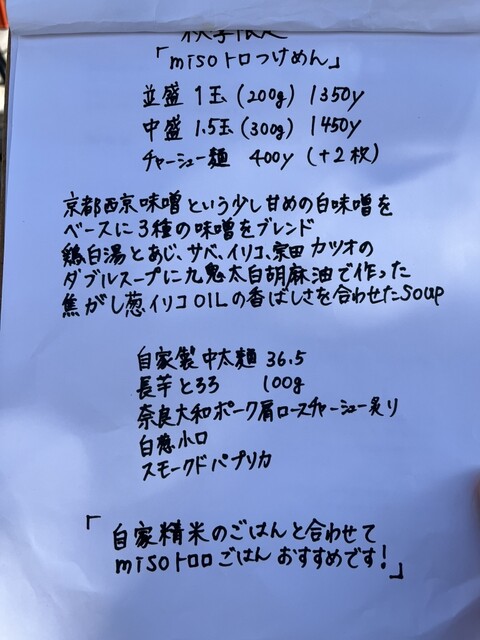 「misoトロつけめん」
並盛 1玉 (200g) 1350y
中盛 1.5玉 (300g) 1450y
チャーシュー麺 400y (+2枚)
京都西京味噌という少し甘めの白味噌を
ベースに3種の味噌をブレンド
鶏白湯とあじ、サベ、イリコ、宗田カツオの
ダブルスープに九鬼太白胡麻油で作った
焦がし葱イリコOILの香ばしさを合わせたSoup
自家製中太麺 36.5
長芋とろろ 100g
奈良大和ポーク肩ロースチャーシュー炙り
白葱小口
スモークドパプリカ
「自家精米のごはんと合わせて
misoトロロごはん おすすめです!」